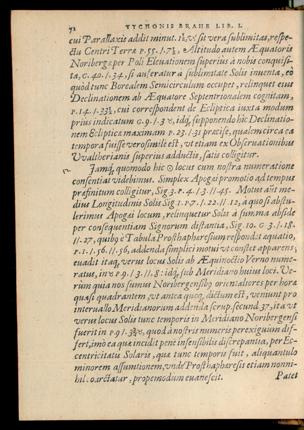 72 TYCHONIS BRAHE LIB. I.
cui Parallaxis addit minut. vt sit vera sublimitas, respe-
ctu Centri Terræ p. 55. Altitudo autem Æquatoris
Noribergæ per Poli Eleuationem superius à nobis conquisi-
ta, c. 40./.34, si auferatur à sublimitate Solis inuenta, eo
quòd tunc Borealem Semicirculum occupet, relinquet eius
Declinationem ab Æquatore Septentrionalem cognitam,
cui correspondent de Ecliptica iuxta modum
prius indicatum idq; supponendo hic Declinatio-
nem Eclipticæ maximam p. 23./.31 præcisè, qualem circa ea
tempora fuisse verosimile est, vt etiam ex Obseruationibus
VValtherianis superius adductis, satis colligitur.
Iamq; quomodo hic ☉ locus cum nostra numeratione
consentiat videbimus. Simplex Apogæi promotio ad tempus
præfinitum colligitur, Sig 3. Motus aūt me-
dius Longitudinis Solis Sig à quo si abstu-
lerimus Apogæi locum, relinquetur Solis à summa abside
per consequentiam Signorum distantia, Sig. 10.
quibꝫ è Tabula Prosthaphæresium respondit æquatio,
addenda simplici motui vt constet apparens;
euadit itaq; verus locus Solis ab Æquinoctio Verno nume-
ratus, idq; sub Meridiano huius loci. Ve-
rùm quia nos sumus Noribergensibꝫ orientaliores per hora
quasi quadrantem, vt anteà quoq; dictum est, veniunt pro
interuallo Meridianorum addenda scrup. secund. 37, ita vt
verus locus Solis tunc temporis in Meridiano Noribergensi
fuerit in quod à nostris numeris perexiguùm dif-
fert, imò ea quæ incidit penè insensibilis discrepantia, per Ec-
centricitatem Solaris, quæ tunc temporis fuit, aliquantulo
minorem assumtionem, vnde Prosthaphæresis etiam nonni-
hil coarctatur, propemodum euanescit.
Patet